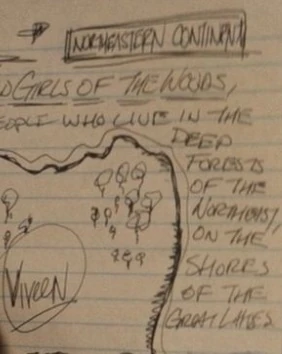 NORTHEASTERN CONTINENT
GIRLS OF THE WOODS,
PEOPLE WHO LIVE IN THE
DEEP
FORESTS
OF THE
NORTHEAST,
ON THE
SHORES
OF THE
GREAT LAKES
VIVEEN